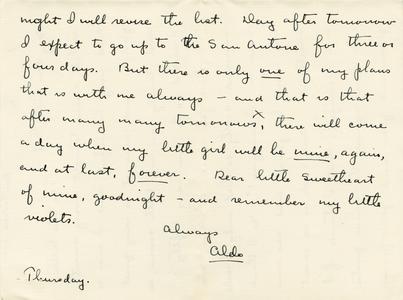 night I will revise the list. Day after tomorrow
I expect to go up to the San Antone for three or
four days. But there is only one of my plans
that is with me always - and that is that
after many many tomorrows x, there will come
a day when my little girl will be mine, again,
and at last, forever. Dear little sweetheart
of mine, goodnight - and remember my little
violets.
Always
Aldo
Thursday.